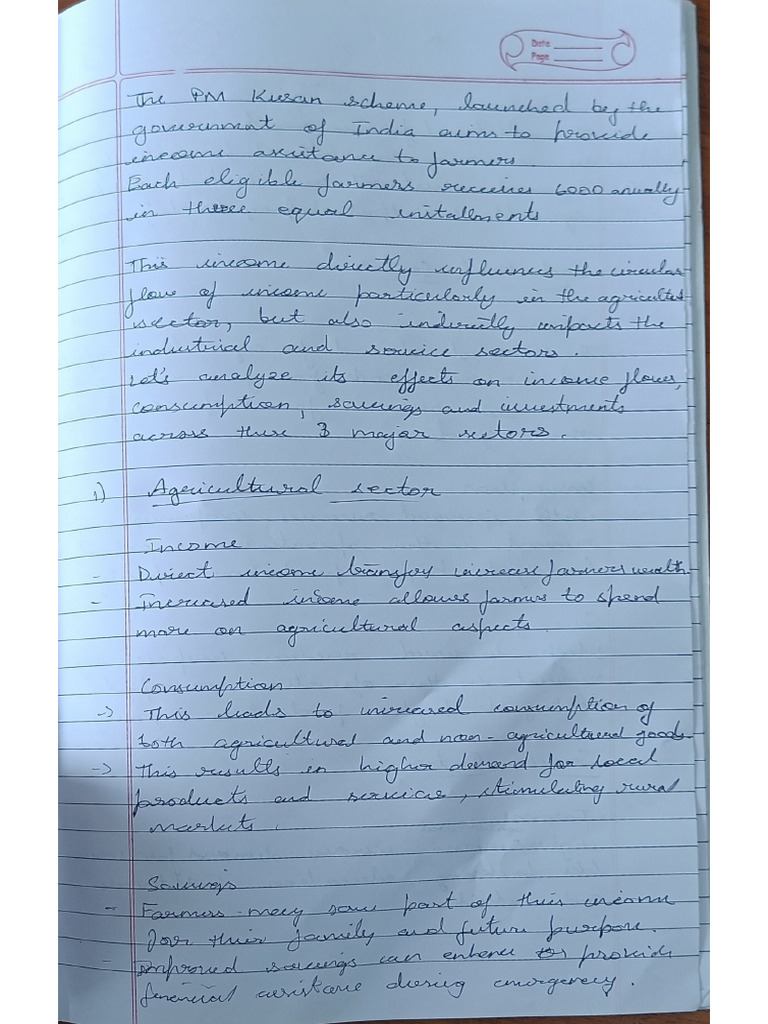 Date
Page
The PM Kusan scheme, launched by the
government of India aims to provide
income assistance to farmers.
Each eligible farmers receives 6000 anually
in three equal installments
This income directly influences the circular
flow of income particularly in the agricultural
sector, but also indirectly impacts the
industrial and service sectors.
Let's analyze its effects on income flows,
consumption, savings and investments
across these 3 major sectors.
1) Agricultural sector
Income
- Direct income transfers increase farmers wealth.
- Increased income allows farmers to spend
more on agricultural aspects
Consumption
-> This leads to increased consumption of
both agricultural and non-agricultural goods.
-> This results in higher demand for local
products and services, stimulating rural
markets.
Savings
- Farmers may save part of their income
for their family and future purpose.
- improved savings can enhance provide
financial assistance during emergency.